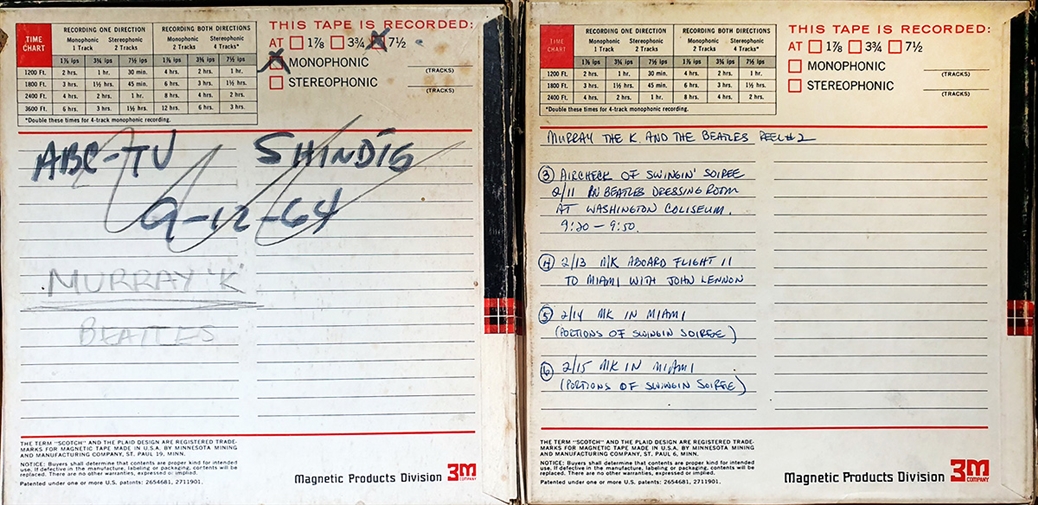 TIME CHART
RECORDING ONE DIRECTION
RECORDING BOTH DIRECTIONS
Monophonic 1 Track
Stereophonic 2 Tracks
Monophonic 2 Tracks
Stereophonic 4 Tracks*
1⅞ ips 3¾ ips 7½ ips 1⅞ ips 3¾ ips 7½ ips
1200 Ft. 2 hrs. 1 hr. 30 min. 4 hrs. 2 hrs. 1 hr.
1800 Ft. 3 hrs. 1½ hrs. 45 min. 6 hrs. 3 hrs. 1½ hrs.
2400 Ft. 4 hrs. 2 hrs. 1 hr. 8 hrs. 4 hrs. 2 hrs.
3600 Ft. 6 hrs. 3 hrs. 1½ hrs. 12 hrs. 6 hrs. 3 hrs.
*Double these times for 4-track monophonic recording.
THIS TAPE IS RECORDED:
AT 1⅞ 3¾ 7½
MONOPHONIC
(TRACKS)
STEREOPHONIC
(TRACKS)
ABC-TV SHINDIG
9-12-64
MURRAY 'K'
BEATLES
THE TERM "SCOTCH" AND THE PLAID DESIGN ARE REGISTERED TRADE-
MARKS FOR MAGNETIC TAPE MADE IN U.S.A. BY MINNESOTA MINING
AND MANUFACTURING COMPANY, ST. PAUL 19, MINN.
NOTICE: Buyers shall determine that contents are proper kind for intended
use. If defective in the manufacture, labeling or packaging, contents will be
replaced. There are no other warranties, expressed or implied.
Patented under one or more U.S. patents: 2654681, 2711901.
Magnetic Products Division 3M COMPANY
TIME CHART
RECORDING ONE DIRECTION
RECORDING BOTH DIRECTIONS
Monophonic 1 Track
Stereophonic 2 Tracks
Monophonic 2 Tracks
Stereophonic 4 Tracks*
1⅞ ips 3¾ ips 7½ ips 1⅞ ips 3¾ ips 7½ ips
1200 Ft. 2 hrs. 1 hr. 30 min. 4 hrs. 2 hrs. 1 hr.
1800 Ft. 3 hrs. 1½ hrs. 45 min. 6 hrs. 3 hrs. 1½ hrs.
2400 Ft. 4 hrs. 2 hrs. 1 hr. 8 hrs. 4 hrs. 2 hrs.
*Double these times for 4-track monophonic recording.
THIS TAPE IS RECORDED:
AT 1⅞ 3¾ 7½
MONOPHONIC
(TRACKS)
STEREOPHONIC
(TRACKS)
MURRAY THE K AND THE BEATLES REEL #2
3 AIRCHECK OF SWINGIN' SOIREE
2/11 IN BEATLES DRESSING ROOM
AT WASHINGTON COLISEUM.
9:20 – 9:50.
4 2/13 M/K ABOARD FLIGHT 11
TO MIAMI WITH JOHN LENNON
5 2/14 MK IN MIAMI
(PORTIONS OF SWINGIN SOIREE)
6 2/15 MK IN MIAMI
(PORTIONS OF SWINGIN SOIREE)
THE TERM "SCOTCH" AND THE PLAID DESIGN ARE REGISTERED TRADE-
MARKS FOR MAGNETIC TAPE MADE IN U.S.A. BY MINNESOTA MINING
AND MANUFACTURING COMPANY, ST. PAUL 6, MINN.
NOTICE: Buyers shall determine that contents are proper kind for intended
use. If defective in the manufacture, labeling or packaging, contents will be
replaced. There are no other warranties, expressed or implied.
Patented under one or more U.S. patents: 2654681, 2711901.
Magnetic Products Division 3M COMPANY